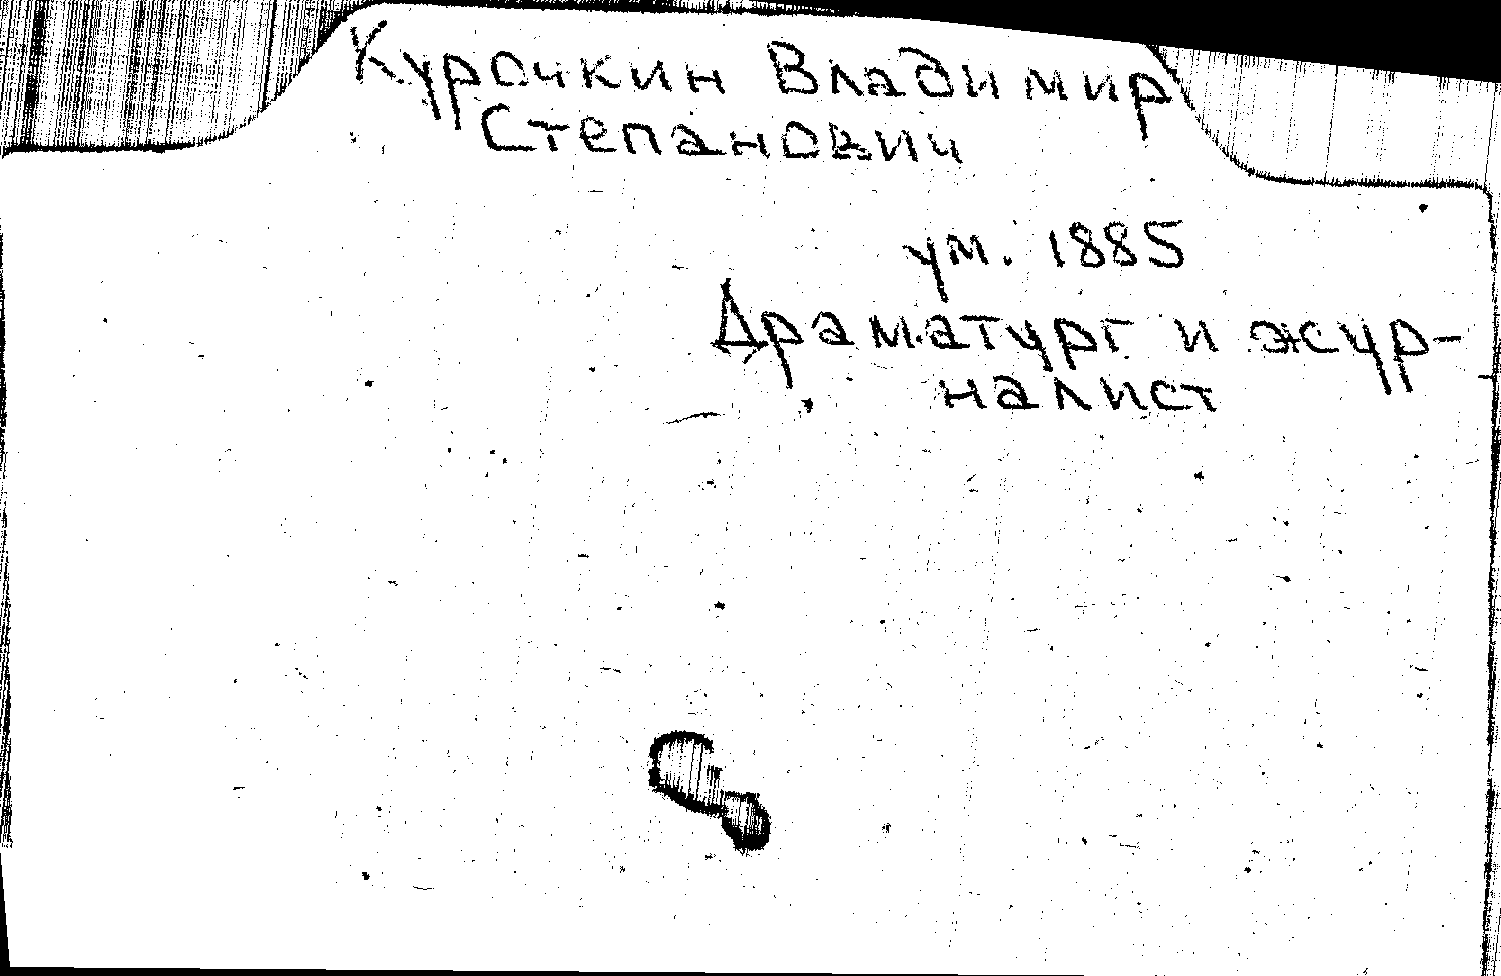 Курочкин Владимир
Степанович
ум. 1885
Драматург и жур-
налист